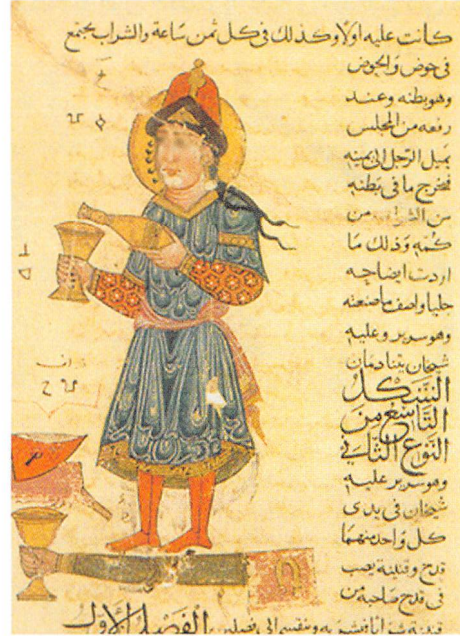 كانت عليه اولا وكذلك في كل ثمن ساعة والشراب يجتمع
في حوض والحوض
وهو بطنه وعند
رفعه من المجلس
يميل الرجل الى يمينه
فيخرج ما في بطنه
من الشراب من
كمه وذلك ما
اردت ايضاحه
جليا واصف ما صنعته
وهو سرير وعليه
شيخان يتنادمان
الشكل
التاسع من
النوع الثاني
وهو سرير عليه
شيخان في يدي
كل واحد منهما
قدح وقنينة يصب
في قدح صاحبه من
الفصل الاول